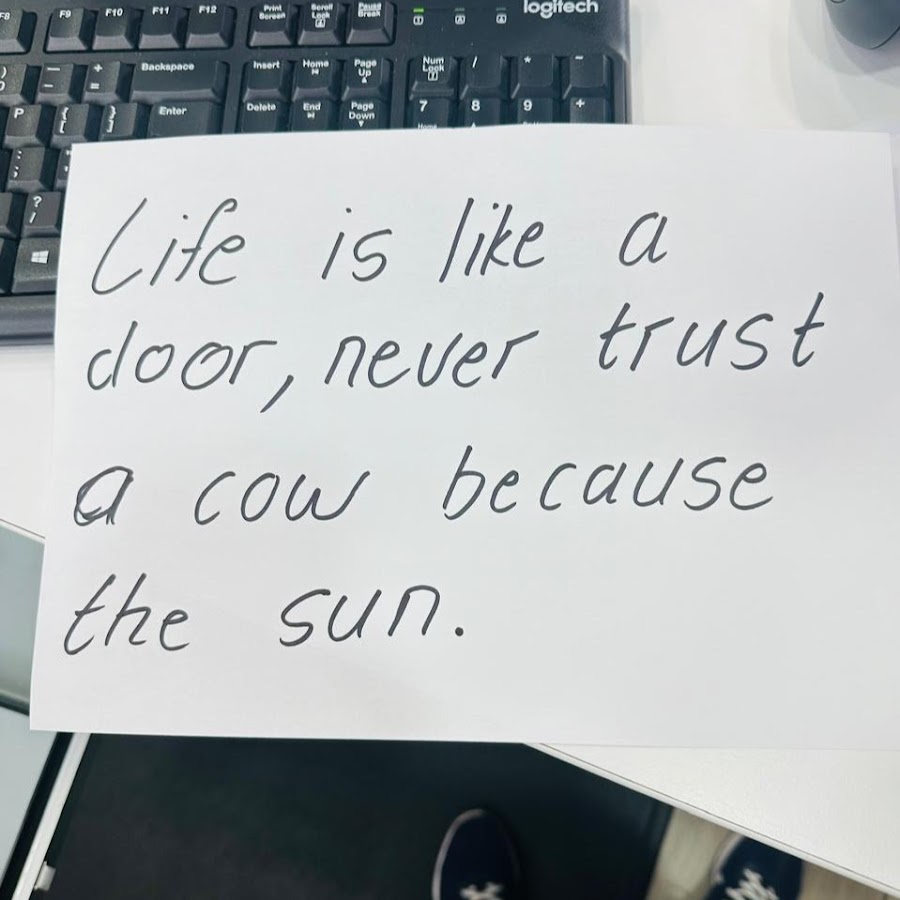 F8 F9 F10 F11 F12 Print Screen Scroll Lock Pause Break logitech
Backspace Insert Home Page Up Num Lock / * -
P { [ } ] Enter Delete End Page Down 7 8 9 +
Home
: ;
? /
Life is like a
door, never trust
a cow because
the sun.